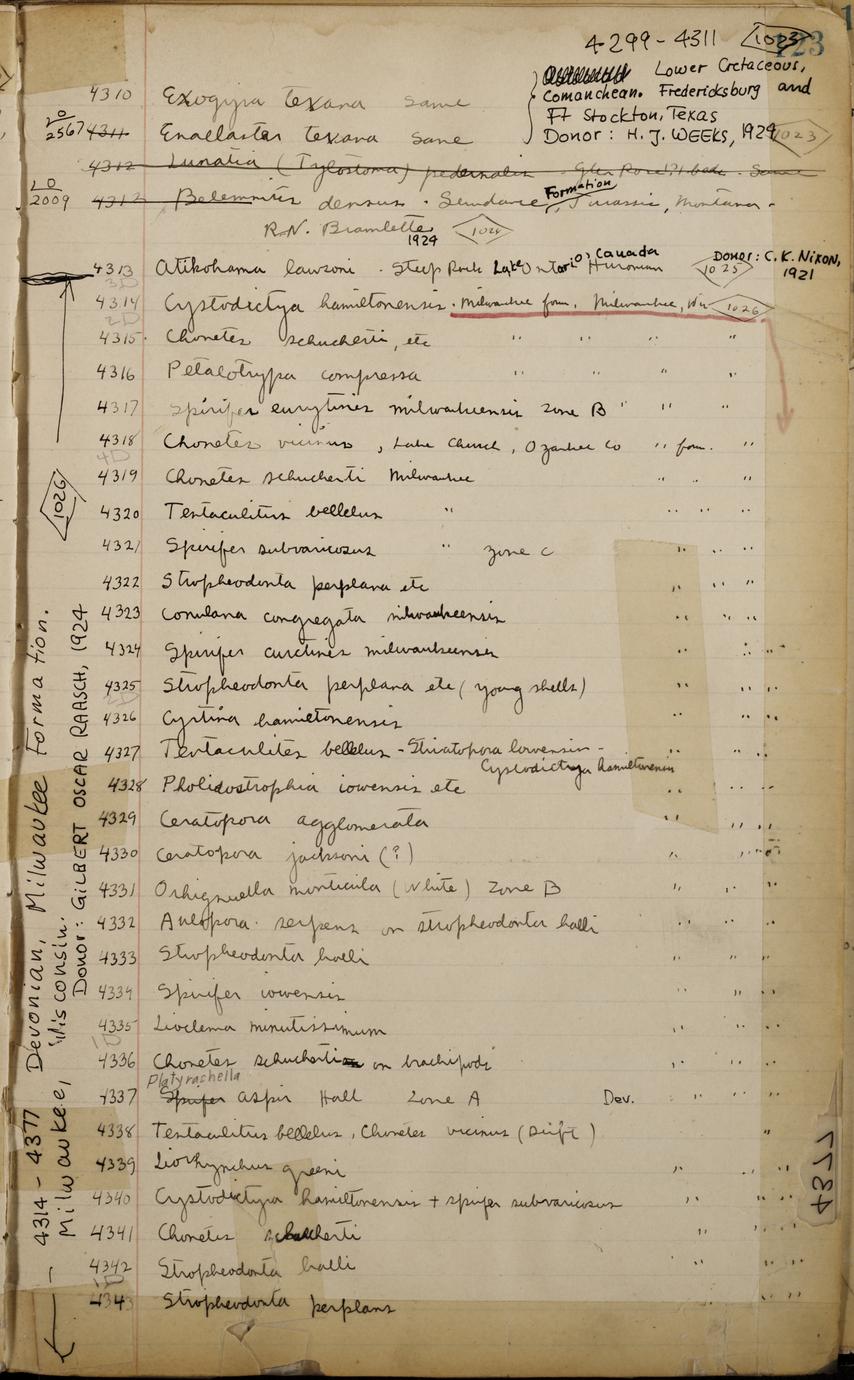 4-299-4311 1023 123
Lower Cretaceous,
Comanchean. Fredericksburg and
Ft Stockton, Texas
Donor: H. J. WEEKS, 1929 1023
4310 Exogyra texana same
LO
2567 4311 Enallaster texana same
4312 Lunatia (Tylostoma) pedernalis Glen Rose(?) beds. Same
LO
2009 4312 Belemnites densus. Sundance Formation, Jurassic, Montana.
R.N. Bramlette 1924 1024
4313 Atikohama lawsoni. Steep Rock Lake Ontario, Canada Huronian 1025 Donor: C. K. Nixon, 1921
3D
4314 Cystodictya hamiltonensis. Milwaukee form. Milwaukee, Wis 1026
2D
4315. Chonetes schucherti, etc " " " "
4316 Petalotrypa compressa " " " "
4317 Spirifer eurytines milwaukeensis zone B " " "
4318 Chonetes vicinus, Lake Church, Ozaukee Co " form. "
4D
4319 Chonetes schucherti Milwaukee " " "
4320 Tentaculitus bellulus " " " "
4321 Spirifer subvaricosus " zone C " " "
4322 Stropheodonta perplana etc " " "
4323 Conularia congregata milwaukeensis " " "
4324 Spirifer milwaukeensis " " "
4325 Stropheodonta perplana etc (young shells) " " "
4326 Cyrtina hamiltonensis " " "
4327 Tentaculites bellulus - Striatopora " " "
Cystodictya hamiltonensis
4328 Pholidostrophia iowensis etc " " "
4329 Ceratopora agglomerata " " "
4330 Ceratopora jacksoni (?) " " "
4331 Orbignyella monticula (White) Zone B " " "
4332 Aulopora. serpens on stropheodonta halli " " "
4333 Stropheodonta halli " " "
4334 Spirifer iowensis " " "
4335 Lioclema minutissimum " " "
1D
4336 Chonetes schucherti on brachipods " " "
Platyrachella
4337 Spirifer aspir Hall Zone A Dev. " " "
4338 Tentaculitus bellulus, Chonetes vicinus (Drift) "
4339 Liorhynchus greeni " " "
4340 Cystodictya hamiltonensis + spirifer subvaricosus " " "
4341 Chonetes schucherti " " "
4342 Stropheodonta halli " " "
1D
4343 Stropheodonta perplans " " "
1026
4314 - 4377 Devonian, Milwaukee Formation.
Milwaukee, Wisconsin.
Donor: GILBERT OSCAR RAASCH, 1924
4377